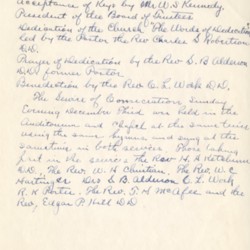 Acceptance of Keys by Mr W S Kennedy
President of the Board of Trustees
Dedication of the Church. The Words of Dedication
led by the Pastor the Rev Charles S. Robertson
D.D.
Prayer of Dedication by the Rev S. B Alderson
D.D. former Pastor
Benediction by the Rev C. L. Work D.D.
The Service of Consecration, Sunday
Evening December Third was held in the
Auditorium and Chapel at the same time
using the same hymns and song at the
same time in both services. Those taking
part in the services The Rev H. H. Ketchum
D.D., The Rev. W. H. Christian. The Rev W. C.
Hartinger. Drs S. B. Alderson C. L. Work
R. K. Porter. The Rev. T. H. McAfee and the
Rev, Edgar P. Hill D.D